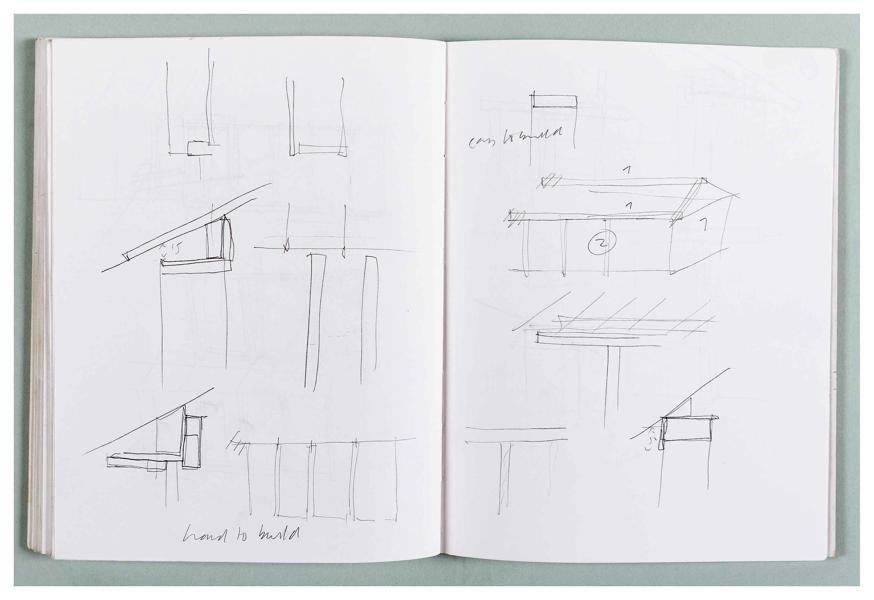 15
hand to build
easy to build
1
1
1
2